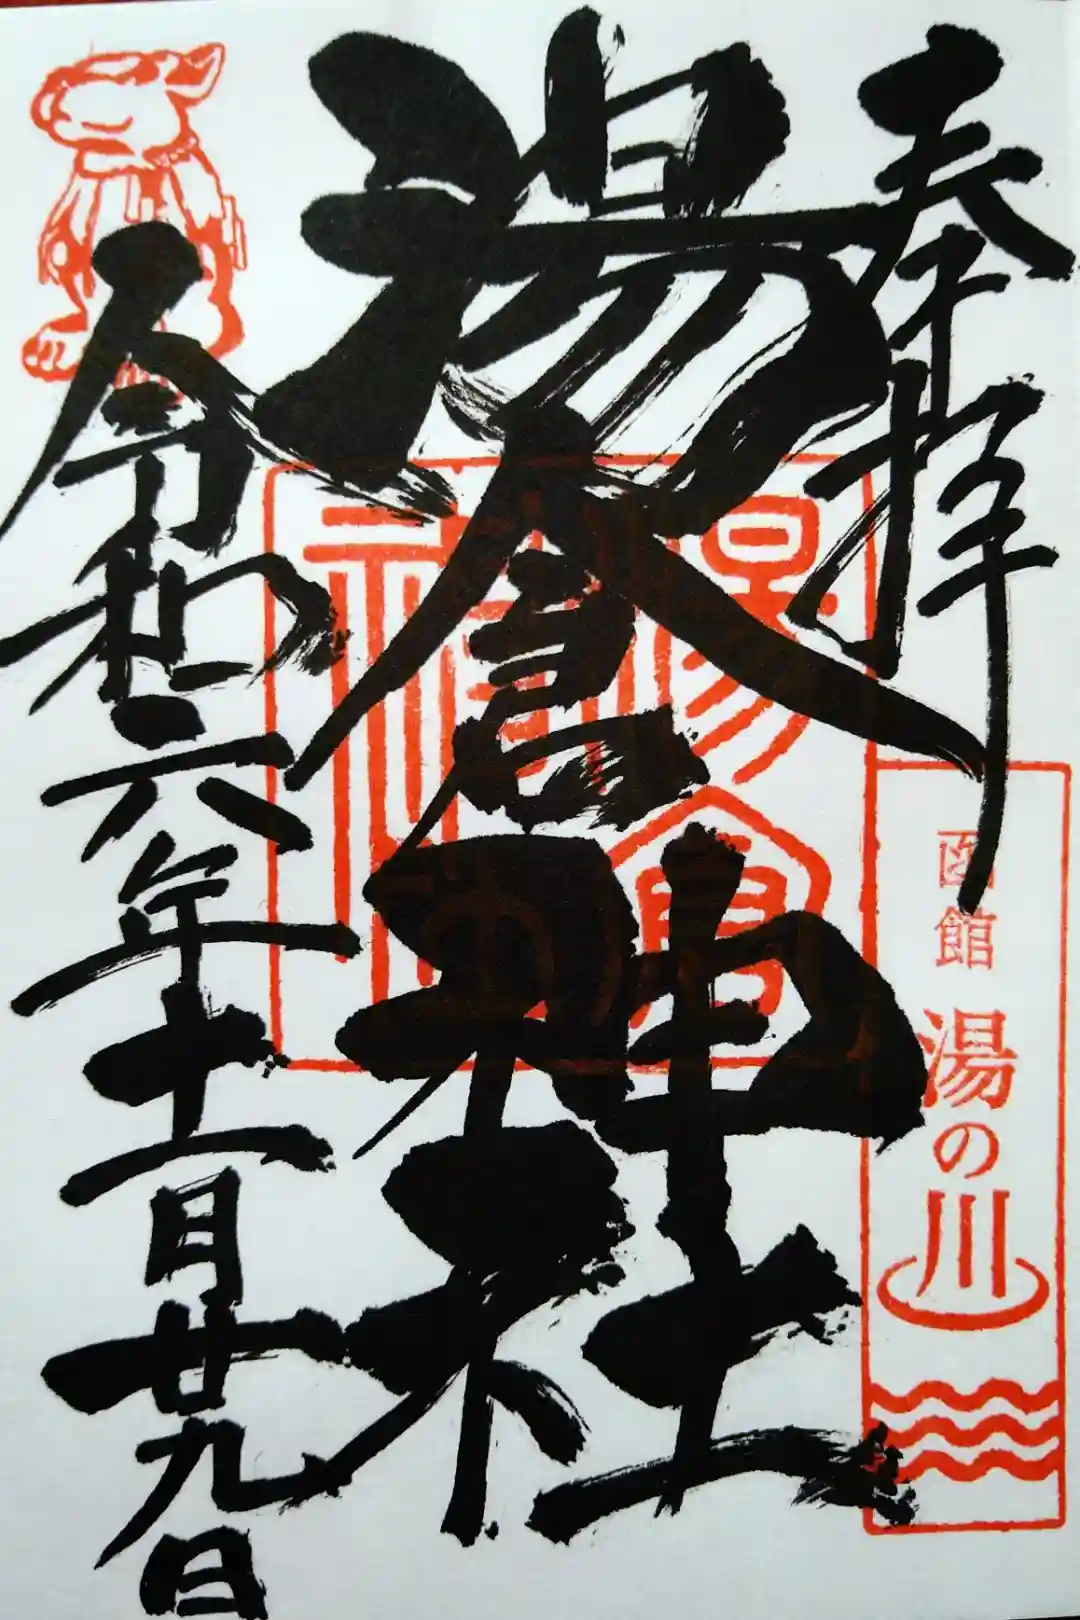 奉拝
函館 湯の川
湯倉神社
令和六年十一月廿九日